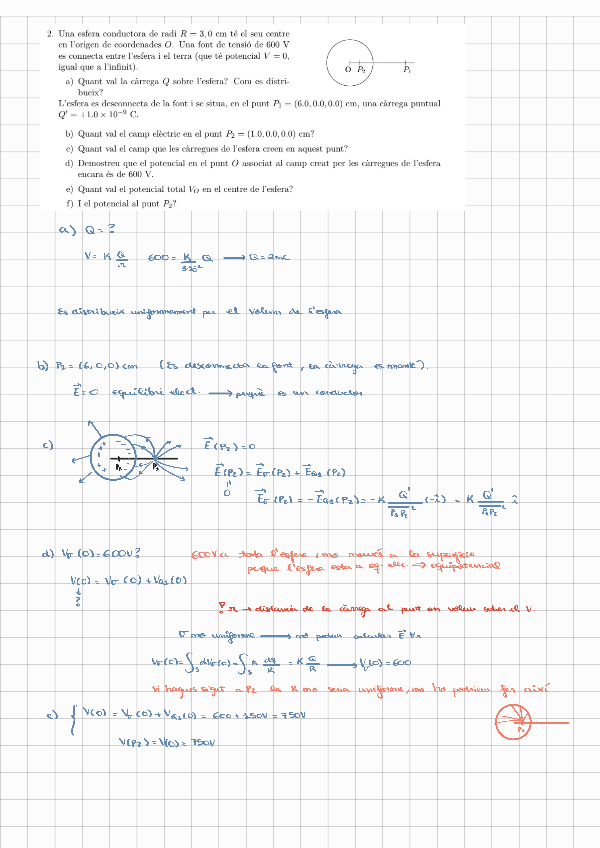 2. Una esfera conductora de radi R = 3,0 cm té el seu centre
en l'origen de coordenades O. Una font de tensió de 600 V
es connecta entre l'esfera i el terra (que té potencial V = 0,
igual que a l'infinit).
a) Quant val la càrrega Q sobre l'esfera? Com es distri-
bueix?
O P₂ P₁
L'esfera es desconnecta de la font i se situa, en el punt P₁ = (6.0,0.0,0.0) cm, una càrrega puntual
Q' = +1.0 × 10⁻⁹ C.
b) Quant val el camp elèctric en el punt P₂ = (1.0,0.0,0.0) cm?
c) Quant val el camp que les càrregues de l'esfera creen en aquest punt?
d) Demostreu que el potencial en el punt O associat al camp creat per les càrregues de l'esfera
encara és de 600 V.
e) Quant val el potencial total V_O en el centre de l'esfera?
f) I el potencial al punt P₂?
a) Q = ?
V = K Q/r 600 = K/3·10⁻² Q → Q = 2nC
Es distribueix uniformament per el volum de l'esfera
b) P₂ = (6,0,0) cm (Es desconnecta la font, la càrrega es manté).
E⃗ = 0 equilibri elect. → perquè es un conductor
c) E⃗(P₂) = 0
E⃗(P₂) = E⃗σ(P₂) + E⃗Q1(P₂)
0
E⃗σ(P₂) = −E⃗Q1(P₂) = −K Q'/P₁P₂² (−î) = K Q'/P₁P₂² î
d) Vσ(0) = 600V? 600V a tota l'esfera, no només a la superfície
perque l'esfera esta a eq. elec. → equipotencial
V(0) = Vσ(0) + VQ1(0)
?
! r → distancia de la càrrega al punt on volem saber el V.
σ no uniforme → no podem calcular E⃗
Vσ(0) = ∫s dVσ(0) = ∫s K dq/R = K Q/R → Vσ(0) = 600
si hagues sigut a P₂ la R no seria uniforme, no ho podriem fer així
e) V(0) = Vσ(0) + VQ1(0) = 600 + 150V = 750V
P₂
V(P₂) = V(0) = 750V